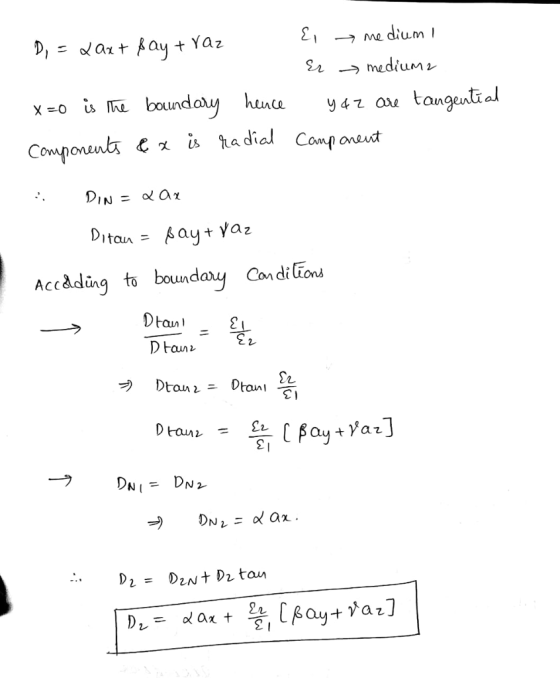 D₁ = αax + βay + γaz
ε₁ → medium 1
ε₂ → medium 2
x=0 is the boundary hence y & z are tangential
Components & x is radial Component
∴ D1N = αax
D1tan = βay + γaz
According to boundary Conditions
→ Dtan1/Dtan2 = ε₁/ε₂
⇒ Dtan2 = Dtan1 ε₂/ε₁
Dtan2 = ε₂/ε₁ [βay + γaz]
→ DN1 = DN2
⇒ DN2 = αax.
∴ D₂ = D2N + D2tan
D₂ = αax + ε₂/ε₁ [βay + γaz]